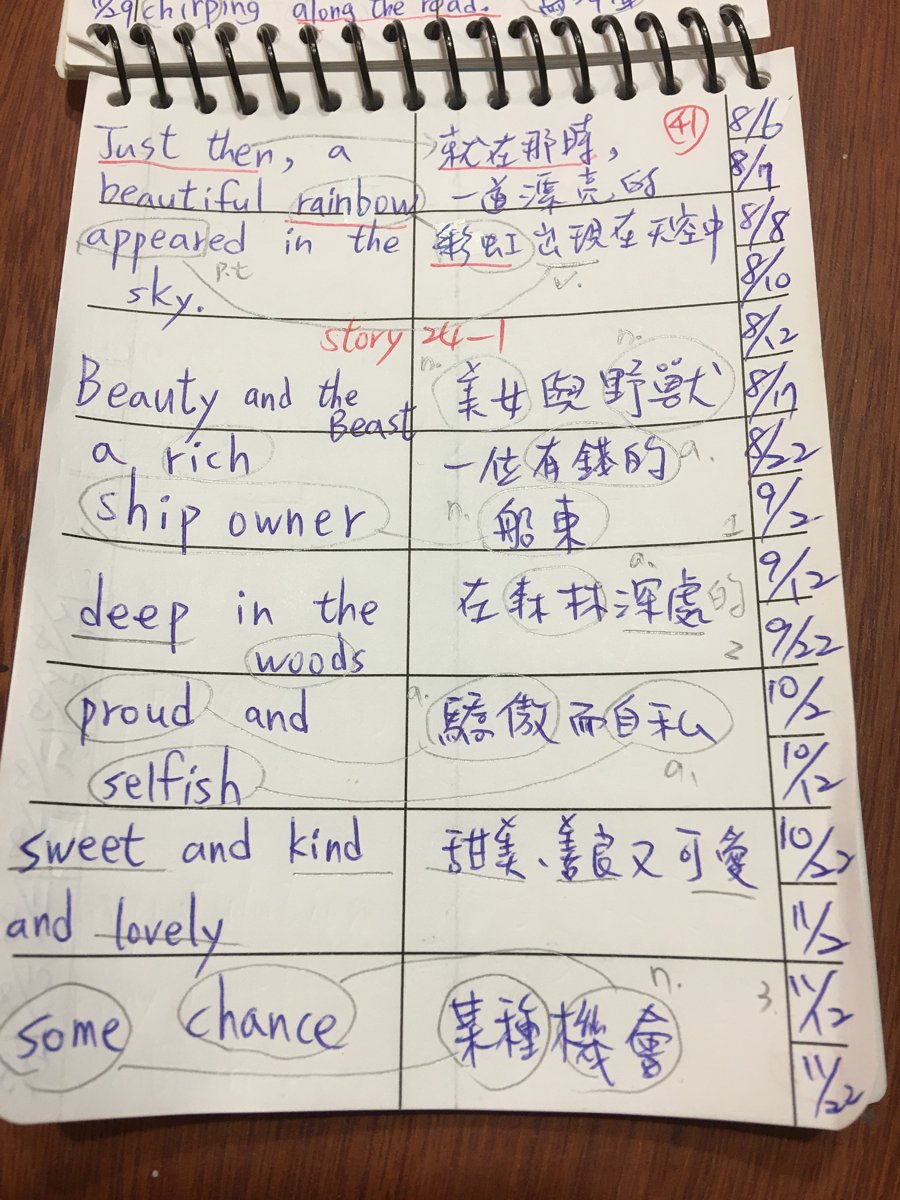 chirping along the road.
Just then, a
就在那時,
41
8/6
beautiful rainbow
一道漂亮的
8/7
appeared in the
彩虹出現在天空中
8/8
p.t
v.
8/10
sky.
story 24-1
8/12
n.
n.
Beauty and the
Beast
美女與野獸
8/17
a rich
一位有錢的
a.
8/22
ship owner
n.
船東
1
9/2
a.
9/12
deep in the
在森林深處的
woods
2
9/22
proud and
a.
驕傲而自私
10/2
selfish
a.
10/12
sweet and kind
甜美、善良又可愛
10/22
and lovely
11/2
n.
3.
11/12
some chance
某種機會
11/22